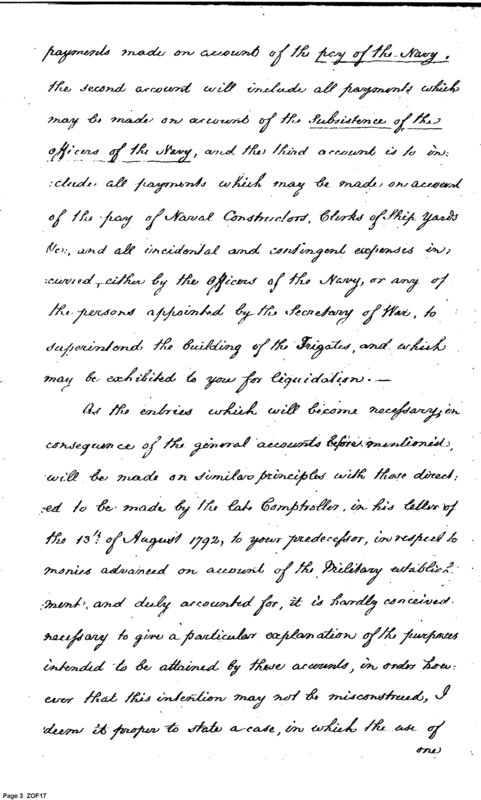 payments made on account of the pay of the Navy,
the second account will include all payments which
may be made on account of the Subsistence of the
Officers of the Navy, and the third account is to in:
:clude all payments which may be made on account
of the pay of Naval Constructors, Clerks of Ship Yards
&c:, and all incidental and contingent expenses in:
:curred, either by the Officers of the Navy, or any of
the persons appointed by the Secretary of War, to
superintend the building of the Frigates, and which
may be exhibited to you for liquidation. —
As the entries which will become necessary, in
consequence of the general accounts before mentioned,
will be made on similar principles with those direct:
:ed to be made by the late Comptroller, in his letter of
the 13th of August 1792, to your predecessor, in respect to
monies advanced on account of the Military establish
:ment, and duly accounted for, it is hardly conceived
necessary to give a particular explanation of the purposes
intended to be attained by these accounts, in order how:
ever that this intention may not be misconstrued, I
deem it proper to state a case, in which the use of
one
Page 3 ZOF17